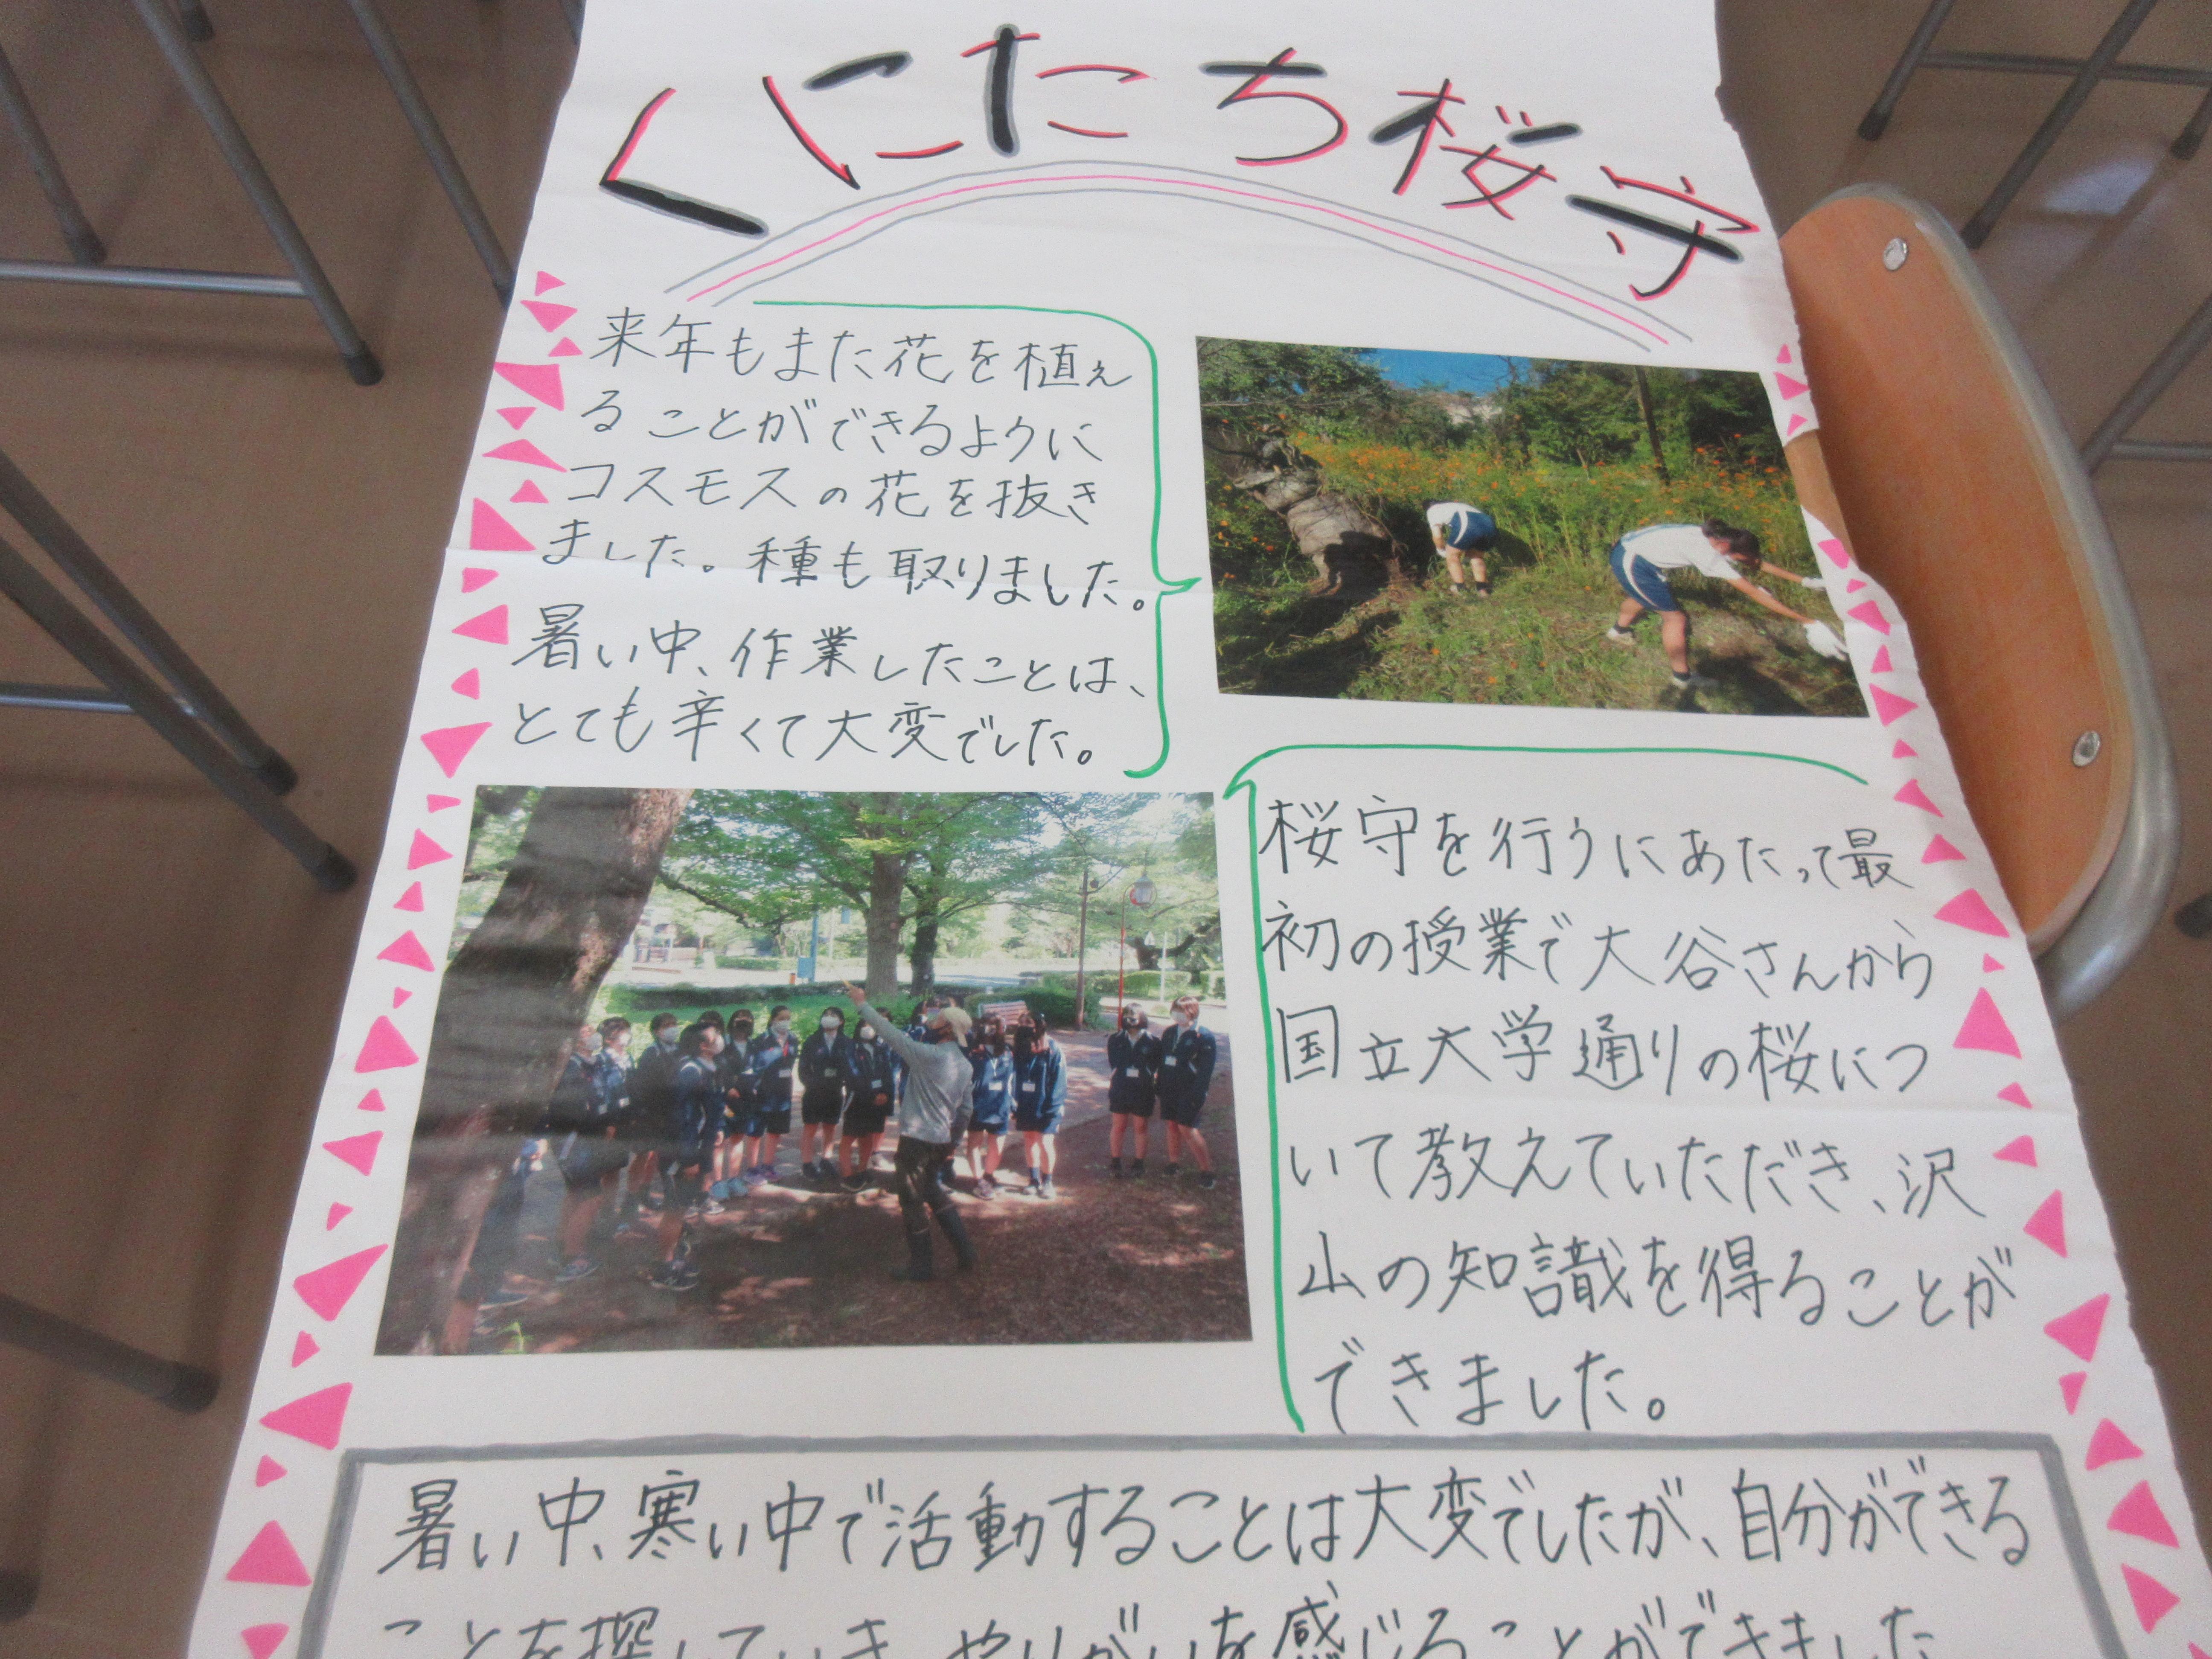 くにたち桜守
来年もまた花を植え
ることができるように
コスモスの花を抜き
ました。種も取りました。
暑い中、作業したことは、
とても辛くて大変でした。
桜守を行うにあたって最
初の授業で大谷さんから
国立大学通りの桜につ
いて教えていただき、沢
山の知識を得ることが
できました。
暑い中、寒い中で活動することは大変でしたが、自分ができる
ことを探していき、やりがいを感じることができました